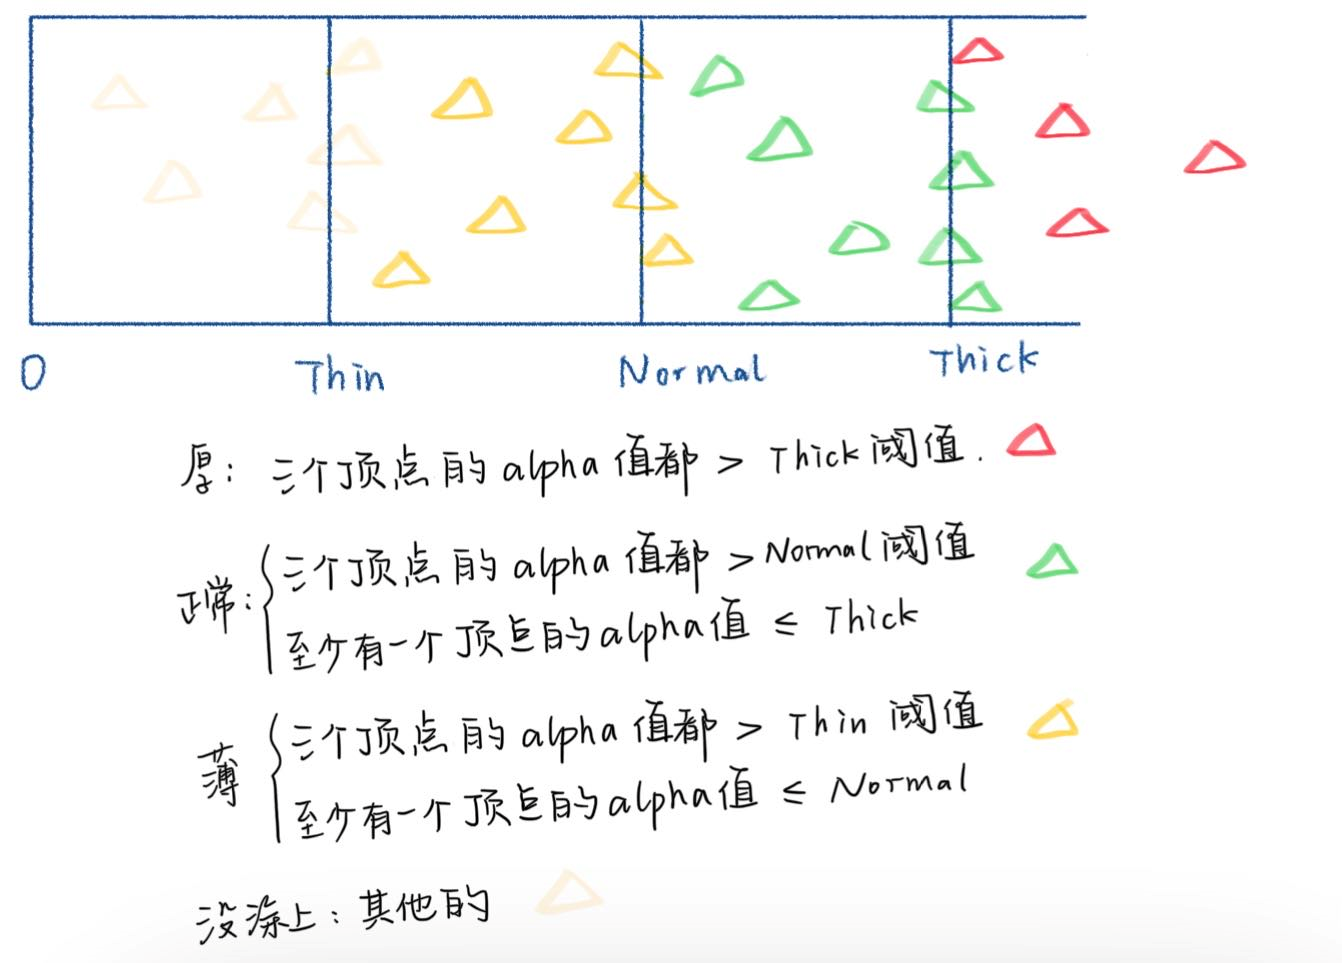 0 Thin Normal Thick
厚: 三个顶点的alpha值都 > Thick阈值.
正常: 三个顶点的alpha值都 > Normal阈值
至少有一个顶点的alpha值 ≤ Thick
薄 三个顶点的alpha值都 > Thin阈值
至少有一个顶点的alpha值 ≤ Normal
没涂上: 其他的